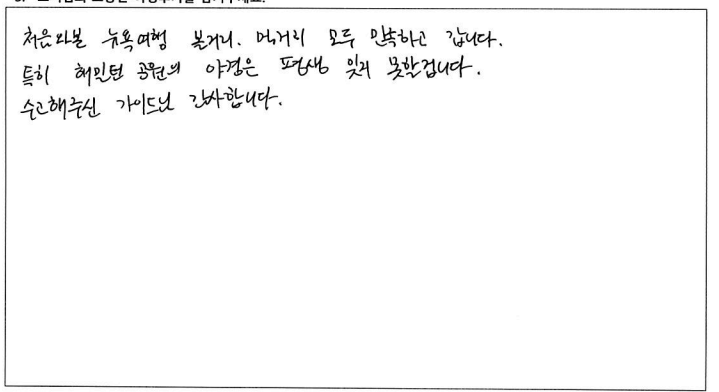 처음와본 뉴욕여행 볼거리. 먹거리 모두 만족하고 갑니다.
특히 해밀턴 공원의 야경은 평생 잊지 못할겁니다.
수고해주신 가이드님 감사합니다.